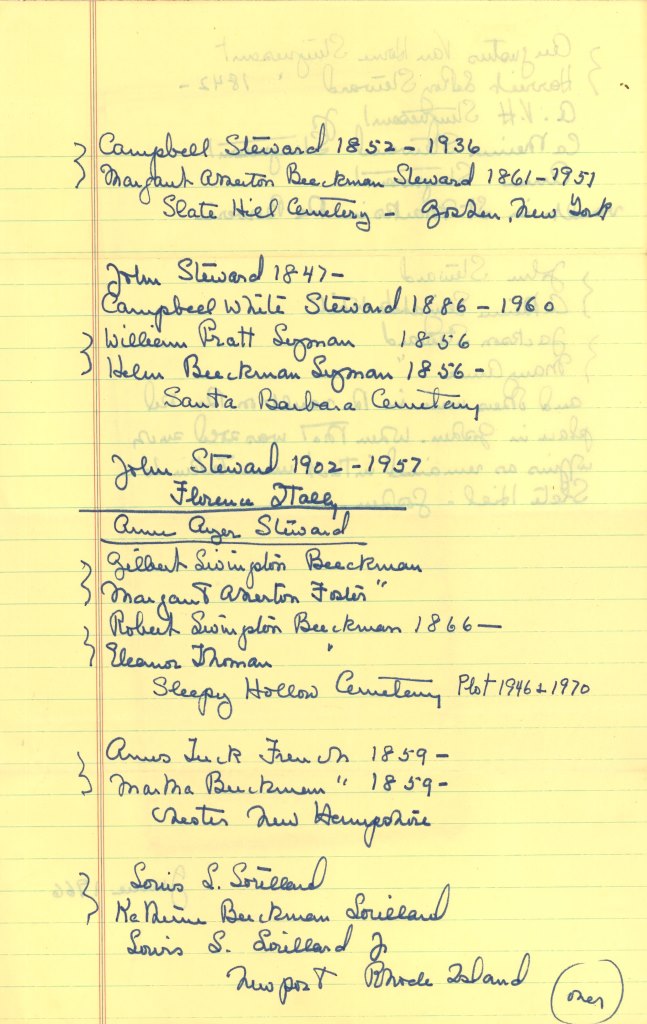 Campbell Steward 1852 - 1936
Margaret Atherton Beeckman Steward 1861 - 1951
Slate Hill Cemetery - Goshen, New York
John Steward 1847 -
Campbell White Steward 1886 - 1960
William Pratt Lyman 1856
Helen Beeckman Lyman 1856 -
Santa Barbara Cemetery
John Steward 1902 - 1957
Florence Italy
Anne Ayer Steward
Gilbert Livingston Beeckman
Margaret Atherton Foster "
Robert Livingston Beeckman 1866 -
Eleanor Thomas "
Sleepy Hollow Cemetery Plot 1946 & 1970
Amos Tuck French 1859 -
Martha Beeckman " 1859 -
Chester New Hampshire
Louis L. Lorillard
Katherine Beeckman Lorillard
Louis L. Lorillard Jr
Newport Rhode Island
over